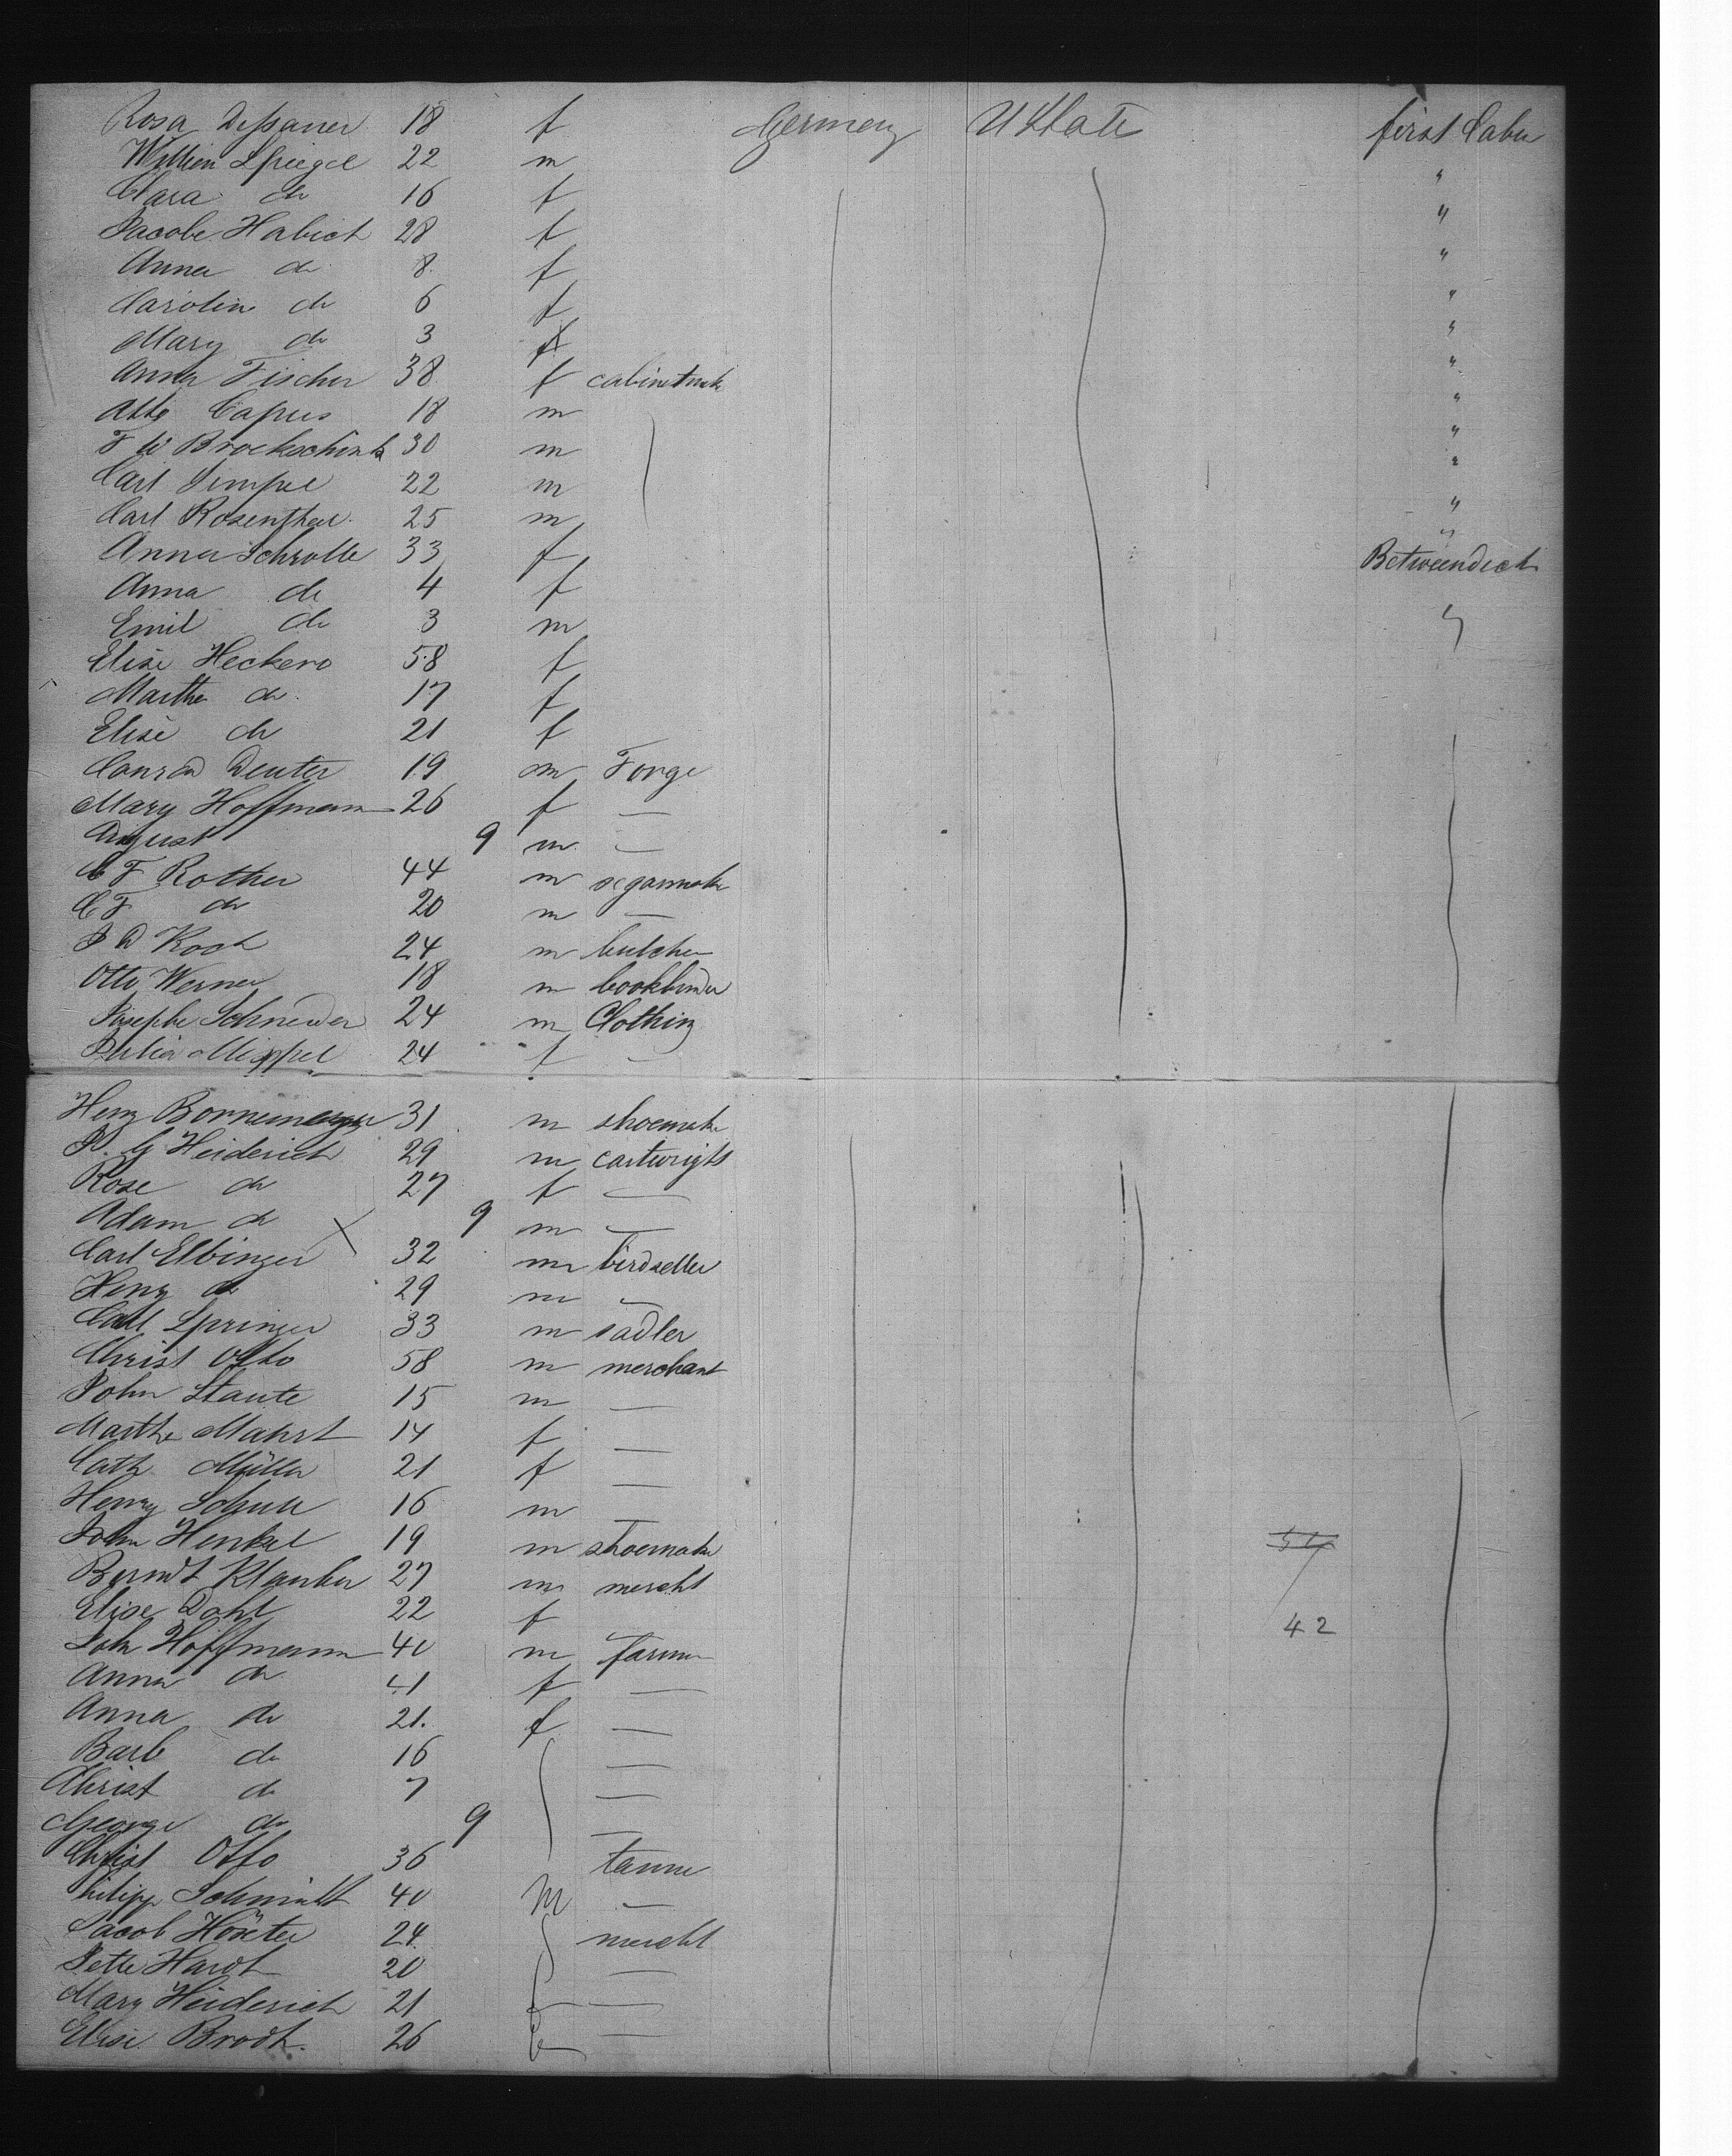 Rosa Dessauer 18 f Germany U State first Cabin
William Spiegel 22 m "
Clara do 16 f "
Jacobe Habicht 28 f "
Anna do 8 f "
Carolin do 6 f "
Mary do 3 f "
Anna Fischer 38 f cabinetmak "
Otto Capus 18 m "
F W Brockschink 30 m "
Carl Simpel 22 m "
Carl Rosenthal 25 m "
Anna Schrolle 33 f Betweendeck
Anna do 4 f "
Emil do 3 m
Elise Heckero 58 f
Martha do 17 f
Elise do 21 f
Conrad Deuter 19 m Forge
Mary Hoffmann 26 f —
August 9 m —
C F Rother 44 m segarmak
C F do 20 m —
J D Koch 24 m butcher
Otto Werner 18 m bookbinder
Josephe Schneider 24 m Clothing
Julia 24 f —
Henry 31 m shoemake
J. G Heiderich 29 m cartwright
Rose do 27 f —
Adam do X 9 m —
Carl Elbinger 32 m birdseller
Henry do 29 m —
Carl Springer 33 m sadler
Christ Otto 58 m merchant
John Staute 15 m —
Martha Mahrt 14 f —
Cath Müller 21 f —
Henry Schull 16 m —
John Henkel 19 m shoemake
Berndt Klauber 27 m mercht
Elise Dahl 22 f 42
Joh Hoffmann 40 m farmer
Anna do 41 f —
Anna do 21. f —
Barb do 16 —
Christ do 7 —
George do 9 —
Christ Otto 36 tanner
Philipp Schmidt 40 M —
Jacob Höxter 24 mercht
Jette Hardt 20 —
Mary Heiderich 21 f —
Elise Brodt. 26 f —